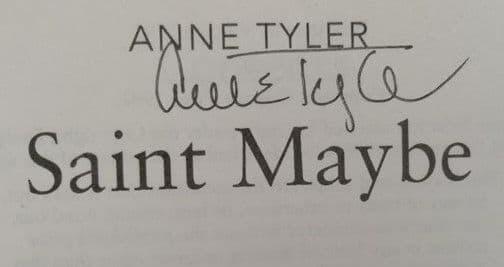 ANNE TYLER
Anne Tyler
Saint Maybe